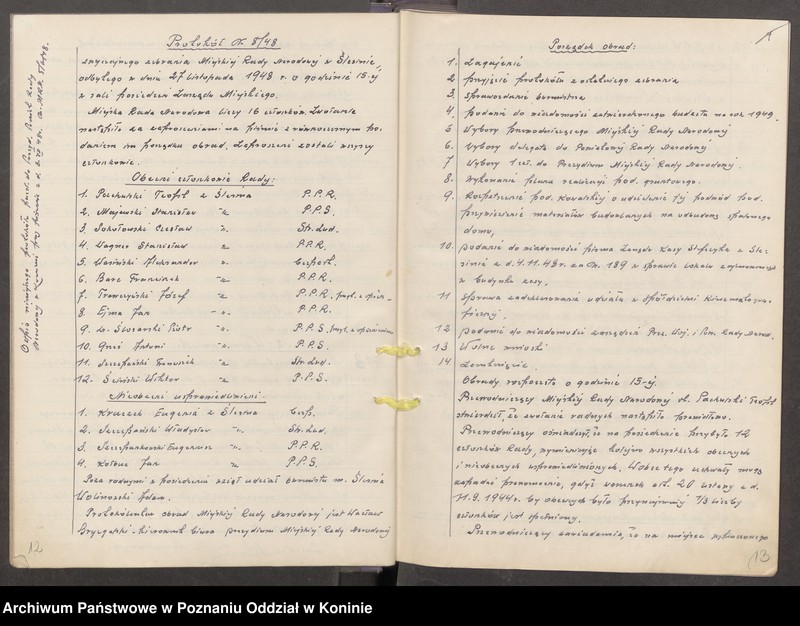 Protokół Nr. 8/48
zwyczajnego zebrania Miejskiej Rady Narodowej w Ślesinie,
odbytego w dniu 27 listopada 1948 r. o godzinie 15-ej
w sali posiedzeń Zarządu Miejskiego.
Miejska Rada Narodowa liczy 16 członków. Zwołanie
nastąpiło za zaproszeniami na piśmie z równoczesnym po-
daniem im porządku obrad. Zaproszeni zostali wszyscy
członkowie.
Obecni członkowie Rady:
1. Pachulski Teofil z Ślesina P.P.R.
2. Majewski Stanisław -"- P.P.S.
3. Sokołowski Czesław -"- Str. Lud.
4. Wagner Stanisław -"- P.P.R.
5. Wasiński Aleksander -"- Bezpart.
6. Bare Franciszek -"- P.P.R.
7. Tromczyński Józef -"- P.P.R.
8. Ejma Jan -"- P.P.R.
9. Piotr -"- P.P.S.
10. Antoni -"- P.P.S.
11. Szczepański Franciszek -"- Str. Lud.
12. Śliwiński Wiktor -"- P.P.S.
Nieobecni usprawiedliwieni:
1. Eugenia z Ślesina Bezp.
2. Szczepański Władysław -"- Str. Lud.
3. Eugeniusz -"- P.P.R.
4. Jan -"- P.P.S.
Poza radnymi w posiedzeniu wziął udział burmistrz m. Ślesina
Woliński Adam.
Protokólantem obrad Miejskiej Rady Narodowej jest Wacław
kierownik biura prezydium Miejskiej Rady Narodowej
12
Porządek obrad:
1. Zagajenie
2 przyjęcie protokółu z ostatniego zebrania
3. Sprawozdanie burmistrza
4. podanie do wiadomości zatwierdzonego budżetu na rok 1949.
5 Wybory przewodniczącego Miejskiej Rady Narodowej
6. Wybory delegata do Powiatowej Rady Narodowej
7 Wybory 1 czł. do Prezydium Miejskiej Rady Narodowej.
8. Wykonanie planu realizacji pod. gruntowego.
9. Rozpatrzenie pod. Kowalskiej o udzielenie jej
materiałów budowlanych na odbudowę spalonego
domu,
10. podanie do wiadomości pisma Zarządu Kasy Stefczyka w Śle-
sinie z d. 4.11.48 r. za Nr. 189 w sprawie lokalu zajmowanego
w budynku kasy.
11 Sprawa zadeklarowania udziału w Spółdzielni Kinematogra-
ficznej.
12 podanie do wiadomości zarządzeń Prez. Woj. i Pow. Rady Narod.
13 Wolne wnioski
14 Zamknięcie.
Obrady rozpoczęto o godzinie 15-ej.
Przewodniczący Miejskiej Rady Narodowej ob. Pachulski Teofil
stwierdził, że zwołanie radnych nastąpiło prawidłowo.
Przewodniczący oświadczył, że na posiedzenie przybyło 12
członków Rady, wymieniając kolejno wszystkich obecnych
i nieobecnych usprawiedliwionych. Wobec tego uchwały mogą
zapadać prawomocnie, gdyż warunek art. 20 ustawy z d.
11.9.1944 r. by obecnych było przynajmniej 1/3 liczby
członków jest spełniony.
Przewodniczący zawiadamia, że na miejsce
13
Archiwum Państwowe w Poznaniu Oddział w Koninie